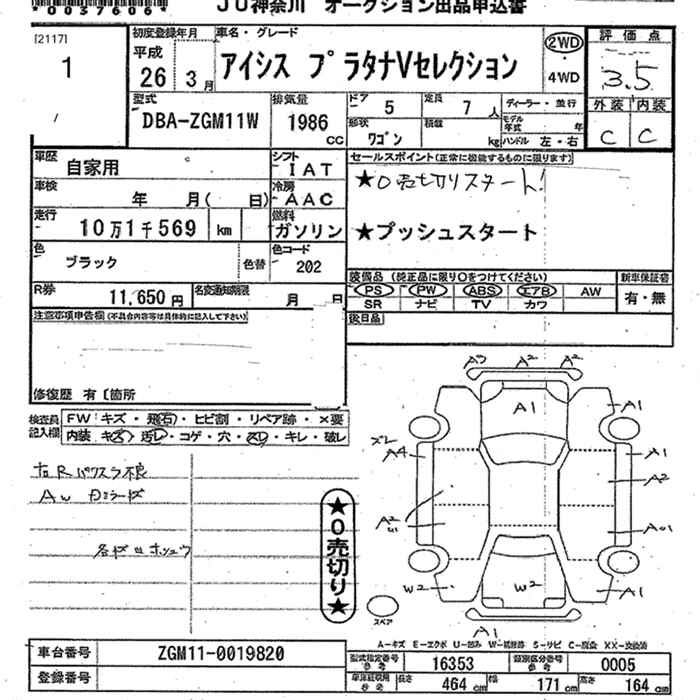 *0037606*
JU神奈川 オークション出品申込書
[2117]
1
初度登録年月
平成
26 3月
車名・グレード
アイシス プラタナVセレクション
2WD
・
4WD
評価点
3.5
外装 内装
C C
型式
DBA-ZGM11W
排気量
1986
cc
ドア
5
定員
7人
形状
ワゴン
積載
kg
ディーラー・並行
モデル年式 年
ハンドル 左・右
車歴
自家用
シフト
IAT
車検
年 月( 日)
冷房
AAC
走行
10万1千569 km
燃料
ガソリン
色
ブラック
色替
色コード
202
R券
11,650円
名変通知期限
月 日
セールスポイント(正常に機能するものに限ります)
★0売切りスタート!
★プッシュスタート
装備品 (純正品に限り○をつけてください)
PS PW ABS エアB AW
SR ナビ TV カワ
新車保証書
有・無
後日品
注意事項申告欄 (不具合内容等は具体的に記入して下さい)
修復歴 有〔箇所
検査員
記入欄
FW:キズ・飛石・ヒビ割・リペア跡・×要
内装 キズ・汚レ・コゲ・穴・スレ・キレ・破レ
★0売切り★
A2 A2
A1
A1
ズレ
A4
A1
A2
A2
W2
W2
A1
A1
スペア
A-キズ E-エクボ U-凹み W-補修跡 S-サビ C-腐食 XX-交換済
車台番号
ZGM11-0019820
登録番号
型式指定番号
参考
16353
類別区分番号
参考
0005
車庫証明用
参考
長さ
464 cm
幅
171 cm
高さ
164 cm